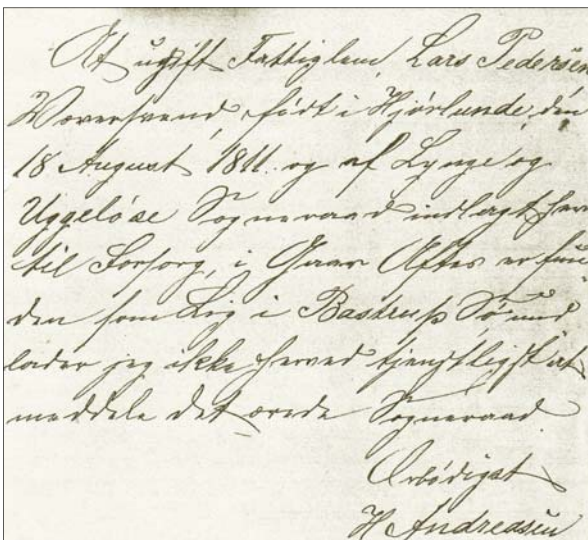 At ugift Fattiglem, Lars Pedersen
Væversvend, født i Hjørlunde, den
18 August 1811. og af Lynge og
Uggeløse Sogneraad indlagt her
til Forsørg, i Gaar Aftes er fun
den som Lig i Bastrup Sø und
lader jeg ikke herved tjenstligst at
meddele det ærede Sogneraad
Ærbødigst
H Andreasen